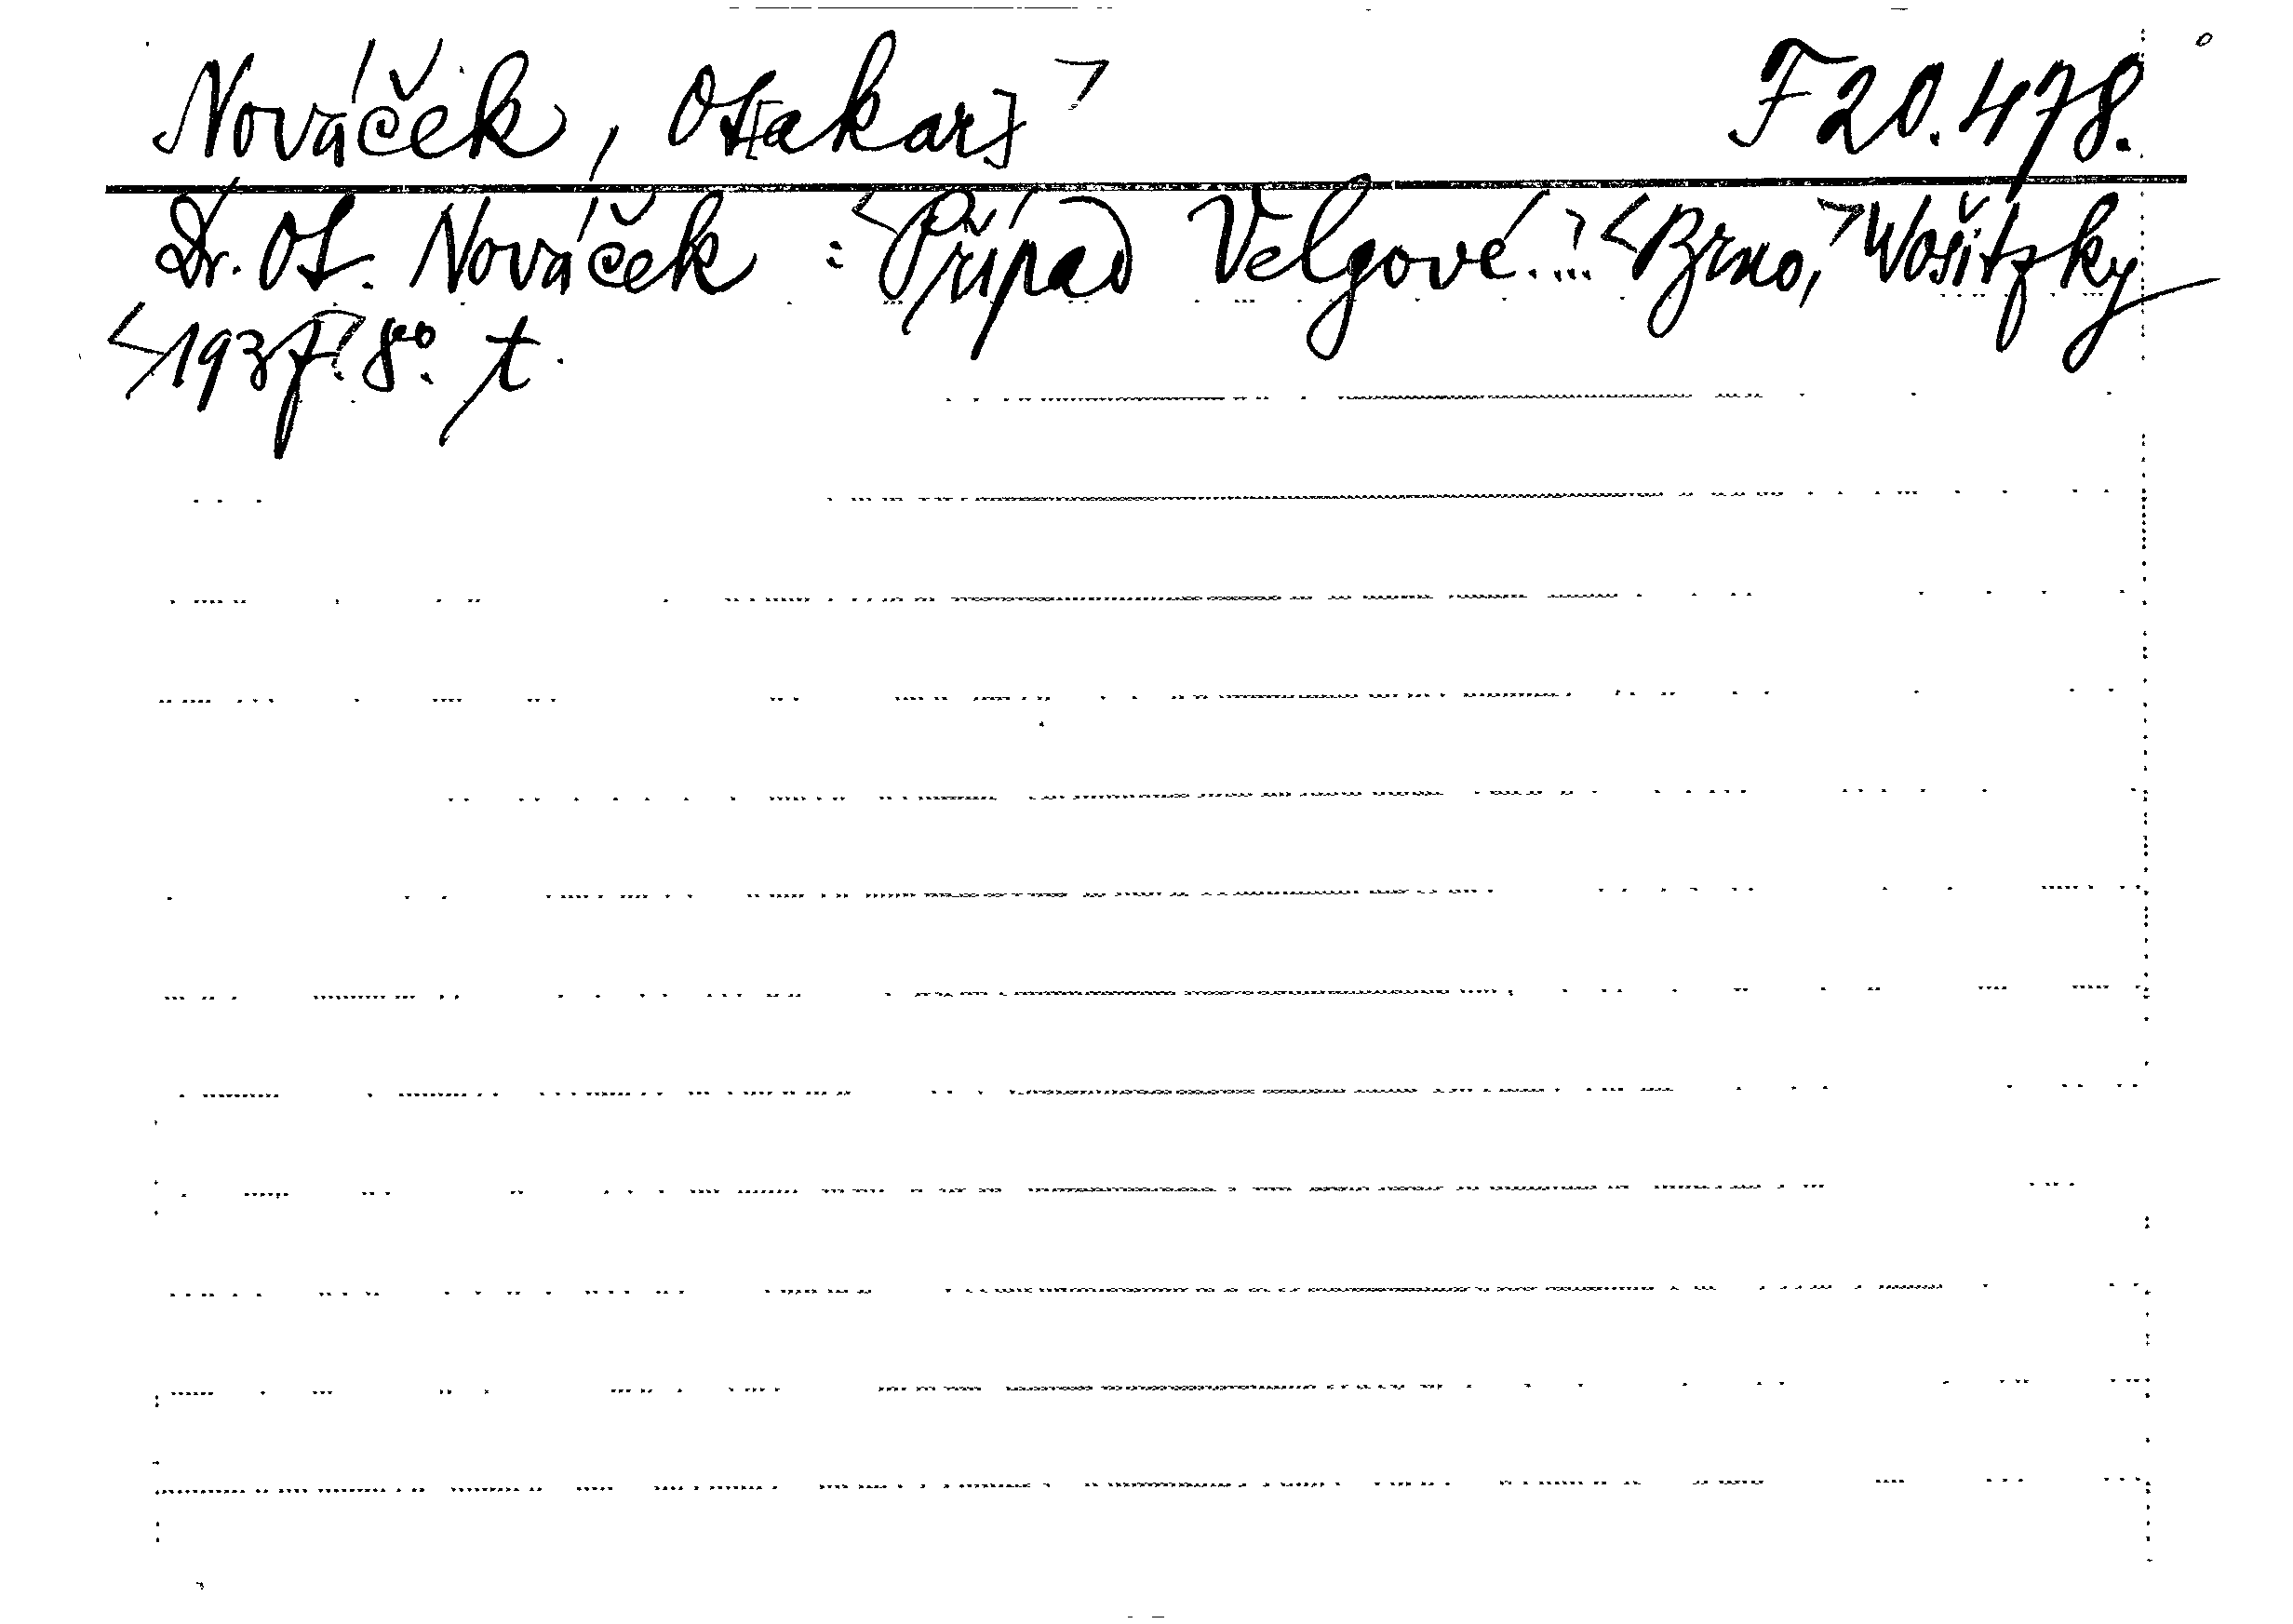 Nováček, Ot[akar] F 20.478.
Dr. Ot. Nováček : Případ Velgové.... Brno, Wošitzky
1937. 8°. t.